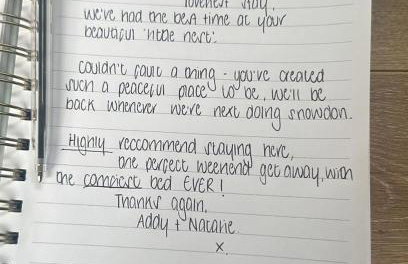 loveliest stay,
we've had the best time at your
beautiful 'little nest'.
Couldn't fault a thing - you've created
such a peaceful place to be, we'll be
back whenever we're next doing snowdon.
Highly reccommend staying here,
the perfect weekend get away, with
the comfiest bed EVER!
Thanks again,
Addy + Natalie
x.